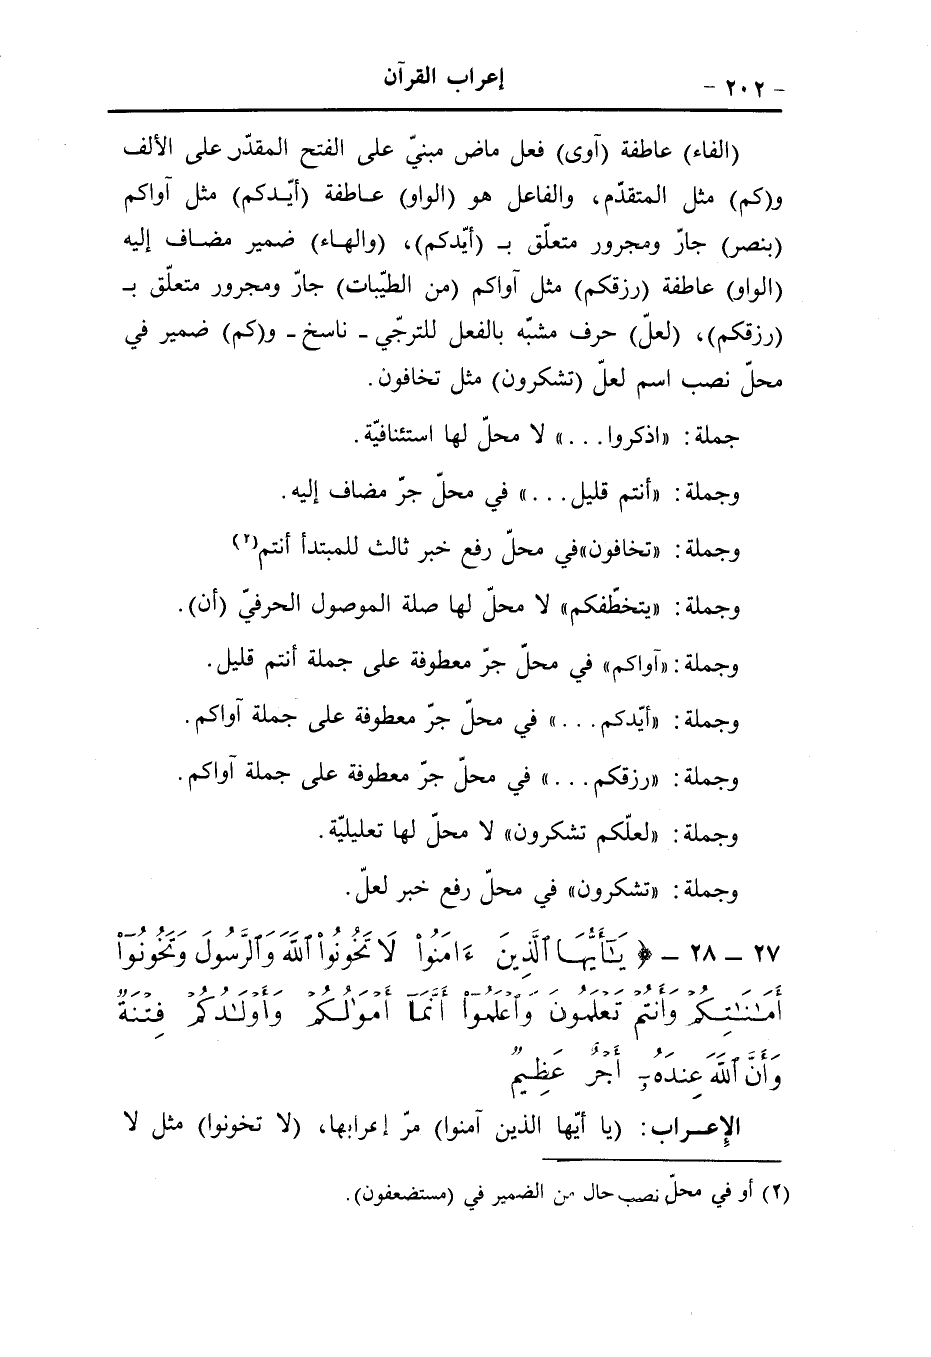 - ٢٠٢ - إعراب القرآن
(الفاء) عاطفة (آوى) فعل ماض مبنيّ على الفتح المقدّر على الألف
و(كم) مثل المتقدّم، والفاعل هو (الواو) عـاطفة (أيّـدكم) مثل آواكم
(بنصر) جارّ ومجرور متعلّق بـ (أيّدكم)، (والهـاء) ضمير مضـاف إليه
(الواو) عاطفة (رزقكم) مثل آواكم (من الطيّبات) جارّ ومجرور متعلّق بـ
(رزقكم)، (لعلّ) حرف مشبّه بالفعل للترجّي ـ ناسخ ـ و(كم) ضمير في
محلّ نصب اسم لعلّ (تشكرون) مثل تخافون.
جملة: «اذكروا...» لا محلّ لها استئنافيّة.
وجملة: «أنتم قليل...» في محلّ جرّ مضاف إليه.
وجملة: «تخافون»في محلّ رفع خبر ثالث للمبتدأ أنتم(٢)
وجملة: «يتخطّفكم» لا محلّ لها صلة الموصول الحرفيّ (أن).
وجملة:«آواكم» في محلّ جرّ معطوفة على جملة أنتم قليل.
وجملة: «أيّدكم...» في محلّ جرّ معطوفة على جملة آواكم.
وجملة: «رزقكم...» في محلّ جرّ معطوفة على جملة آواكم.
وجملة: «لعلّكم تشكرون» لا محلّ لها تعليليّة.
وجملة: «تشكرون» في محلّ رفع خبر لعلّ.
٢٧ ـ ٢٨ ـ ﴿ يَـٰٓأَيُّهَا ٱلَّذِينَ ءَامَنُوا۟ لَا تَخُونُوا۟ ٱللَّهَ وَٱلرَّسُولَ وَتَخُونُوٓا۟
أَمَـٰنَـٰتِكُمْ وَأَنتُمْ تَعْلَمُونَ وَٱعْلَمُوٓا۟ أَنَّمَآ أَمْوَٰلُكُمْ وَأَوْلَـٰدُكُمْ فِتْنَةٌ
وَأَنَّ ٱللَّهَ عِندَهُۥٓ أَجْرٌ عَظِيمٌ
الإعـراب: (يا أيّها الذين آمنوا) مرّ إعرابها، (لا تخونوا) مثل لا
(٢) أو في محلّ نصب حال من الضمير في (مستضعفون).